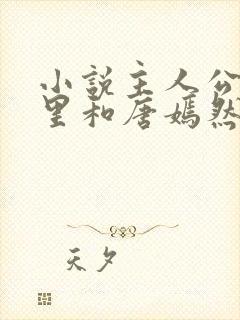 小说主人公
里和唐嫣然
天夕